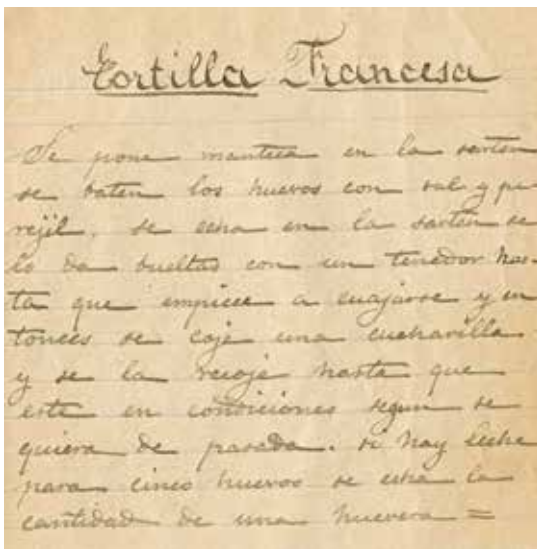 Tortilla Francesa
Se pone manteca en la sartén
se baten los huevos con sal y pe-
rejil, se echa en la sartén se
lo da bueltas con un tenedor has-
ta que empiece a cuajarse y en
tonces se coje una cucharilla
y se la recoje hasta que
este en condiciones segun se
quiera de pasada. si hay leche
para cinco huevos se echa la
cantidad de una huevera =